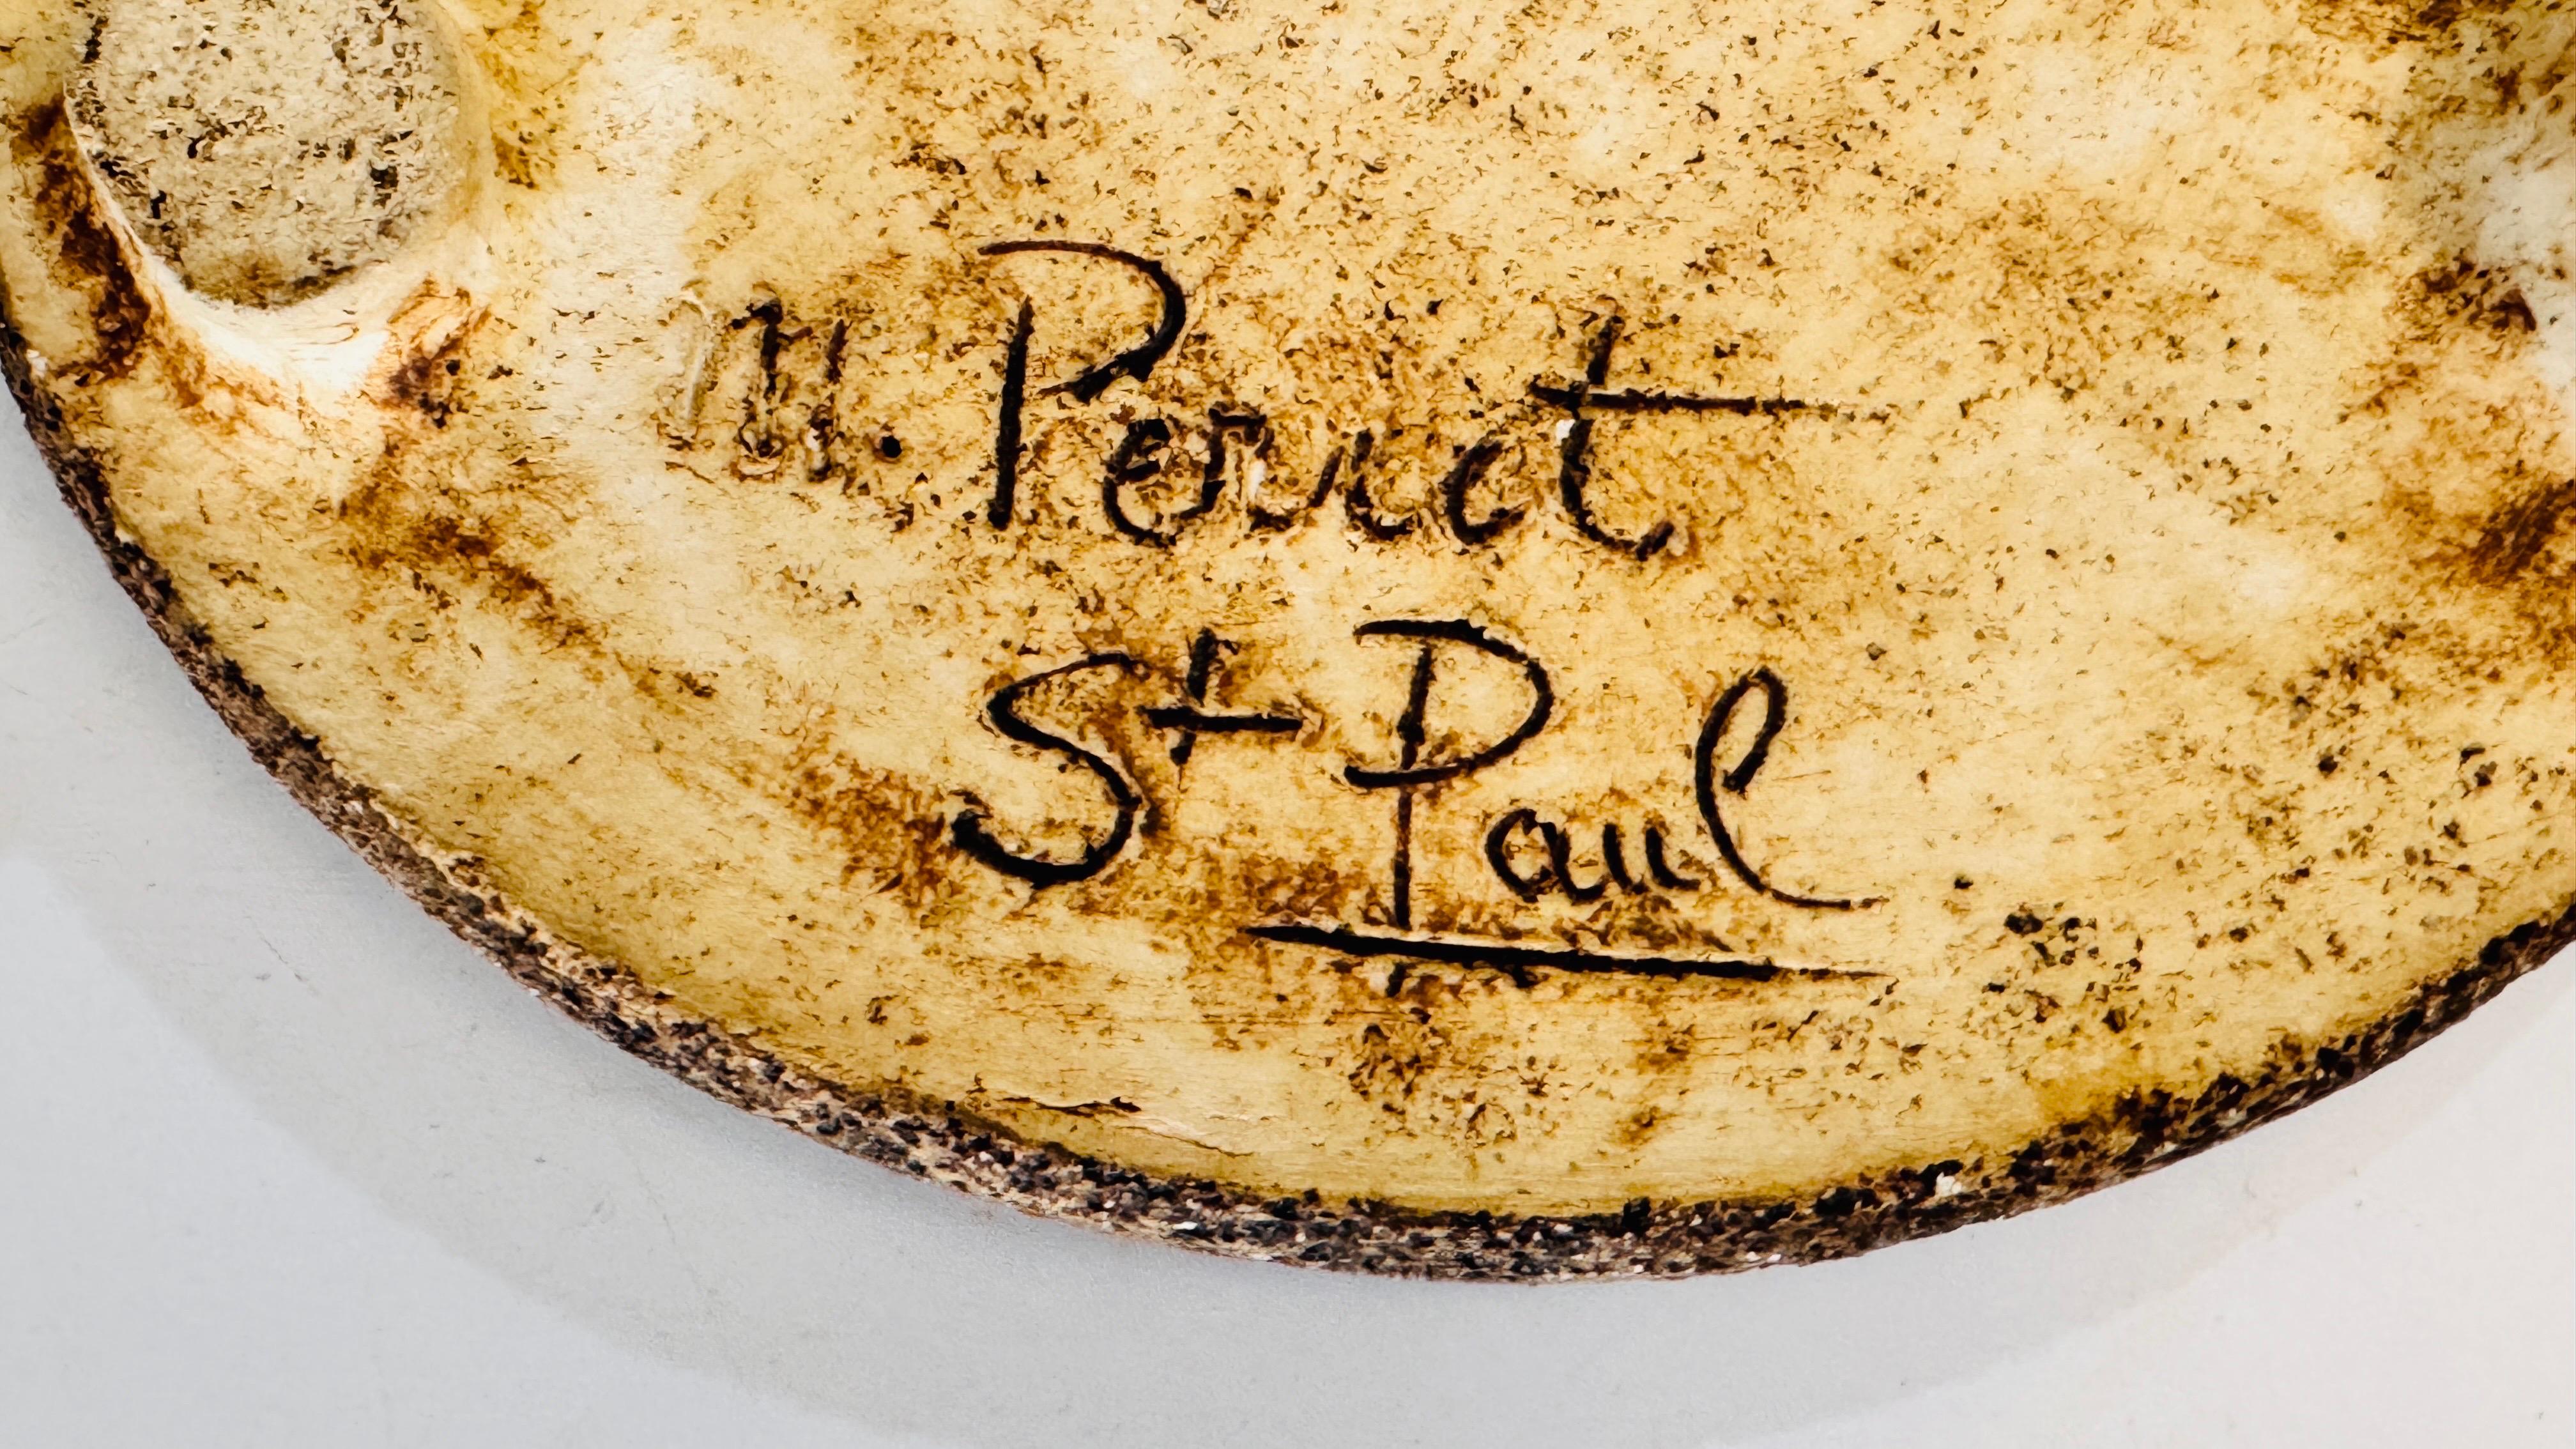 M. Perrot
St Paul